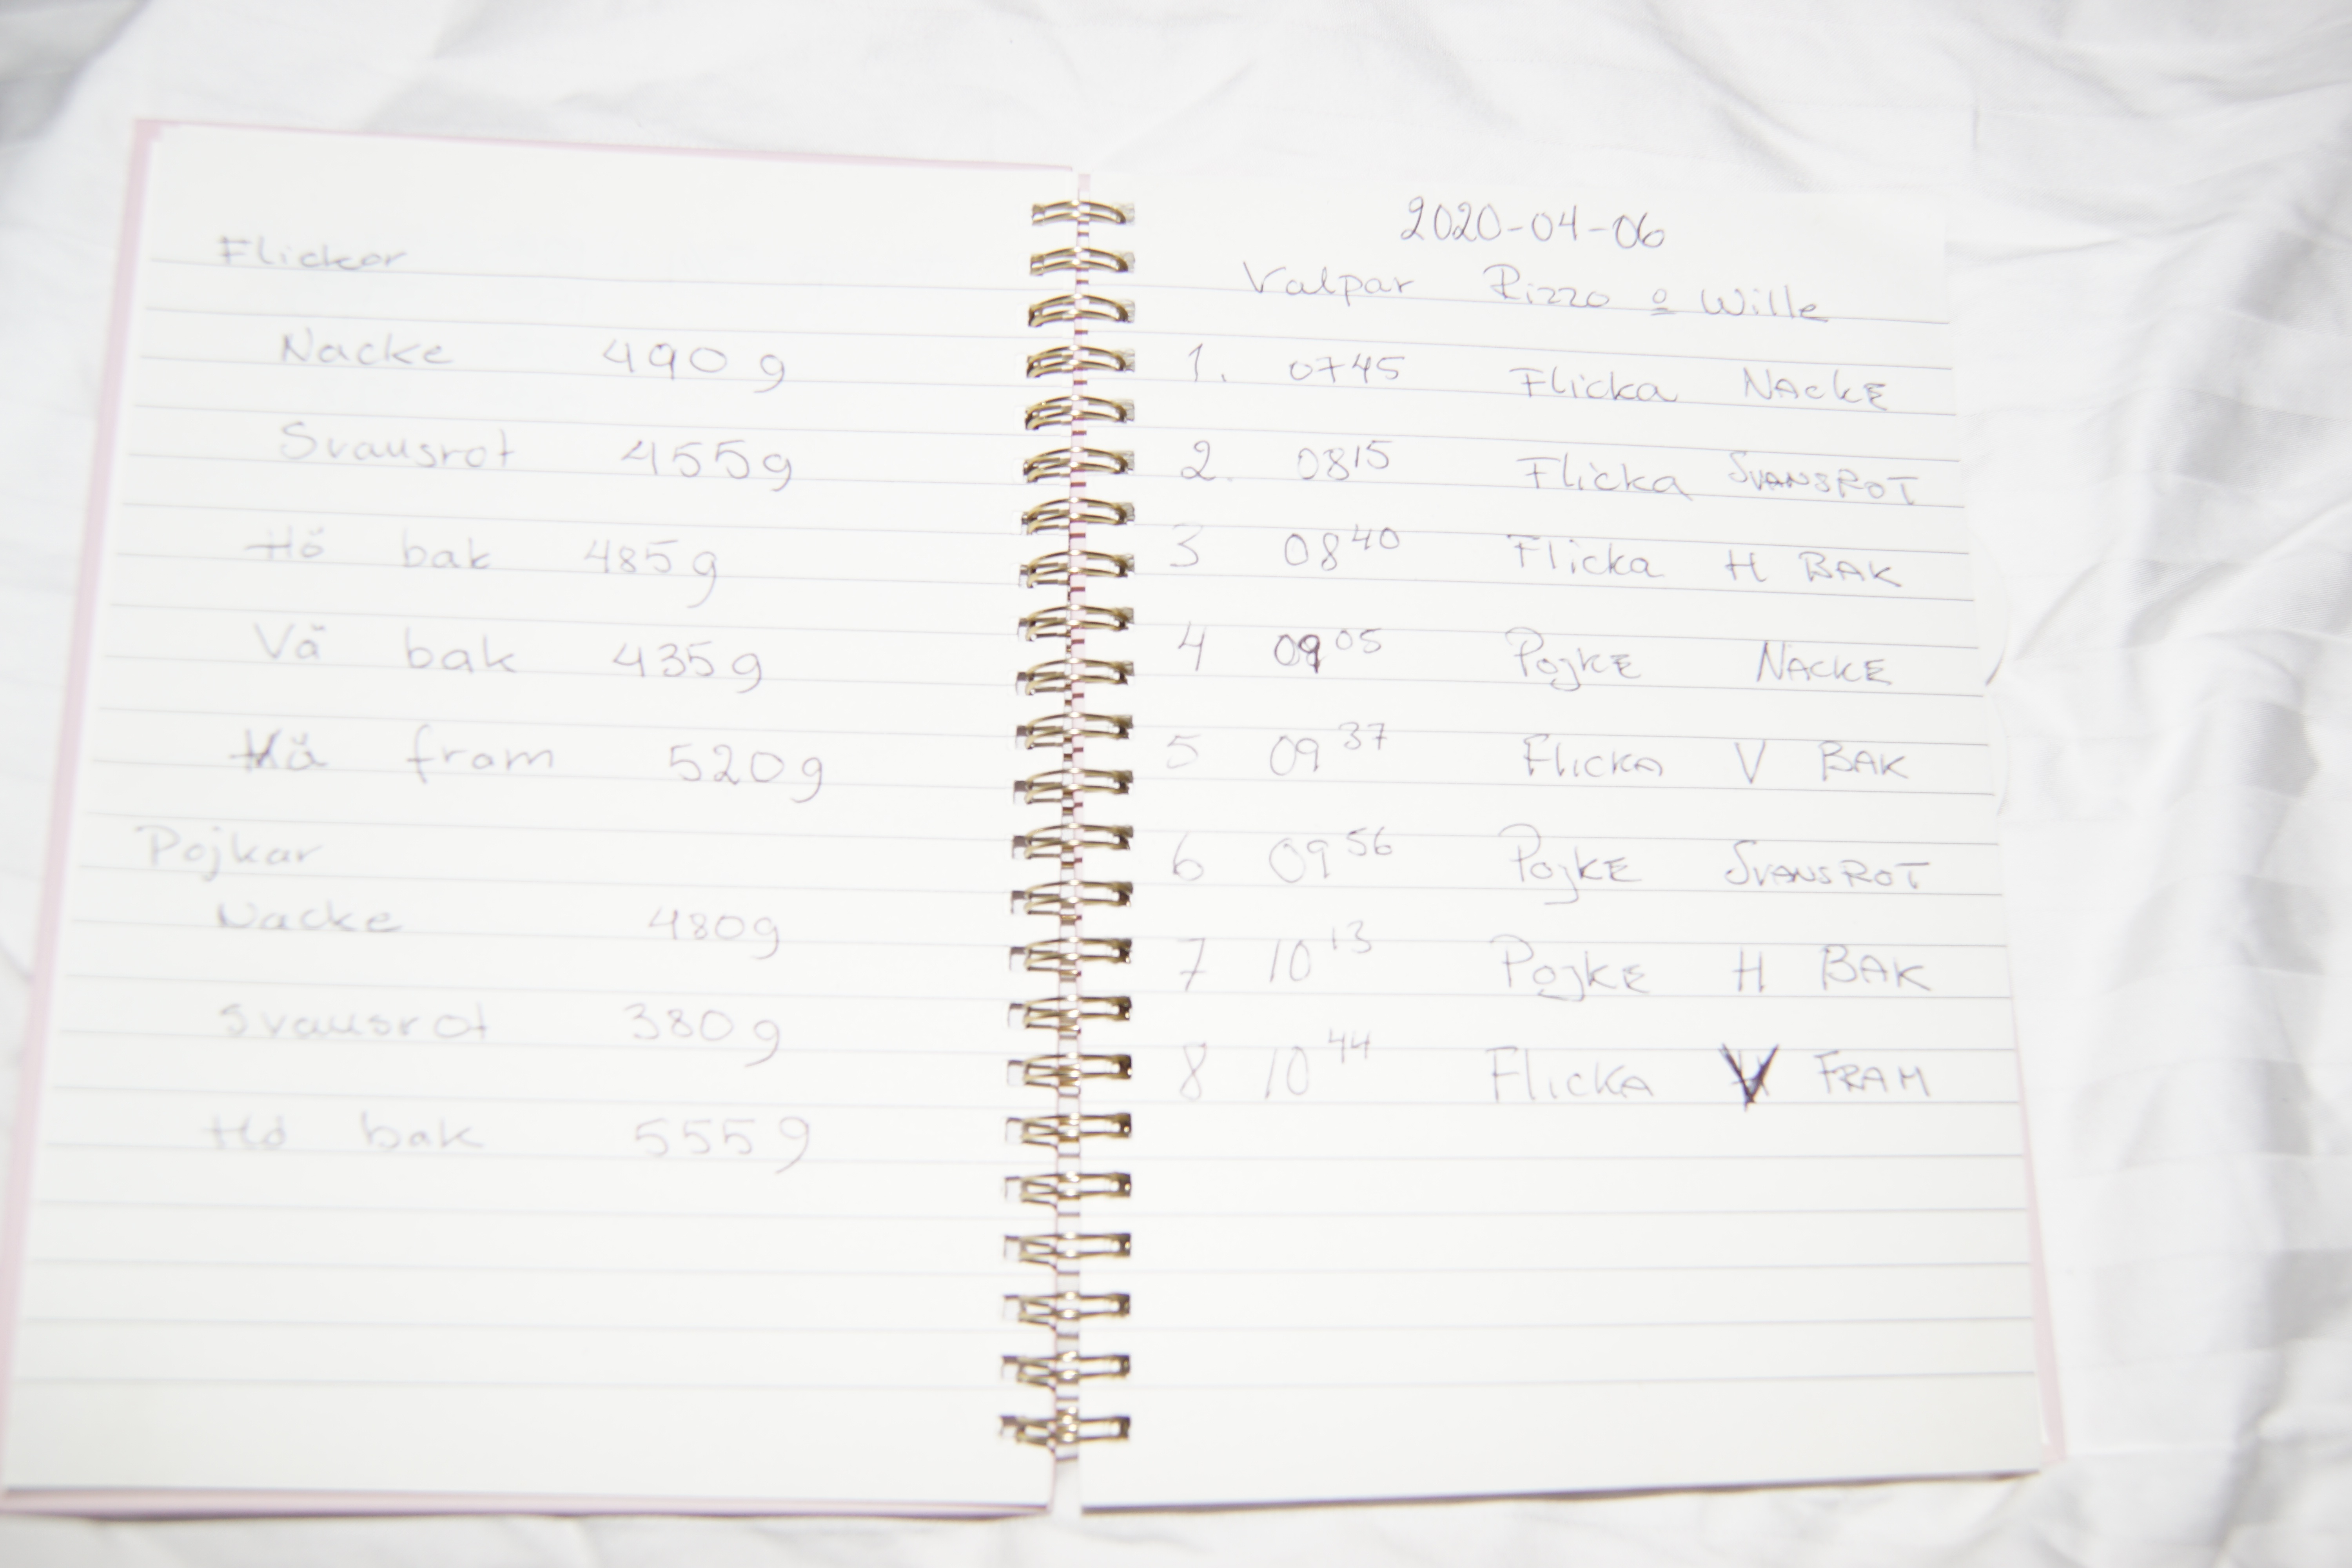 Flickor
Nacke 490 g
Svansrot 455g
Hö bak 485g
Vä bak 435g
Vä fram 520g
Pojkar
Nacke 480g
Svansrot 380g
Hö bak 555g
2020-04-06
Valpar Rizzo o Wille
1. 0745 Flicka NACKE
2. 0815 Flicka SVANSROT
3 0840 Flicka H BAK
4 0905 POJKE NACKE
5 0937 FLICKA V BAK
6 0956 POJKE SVANSROT
7 1013 POJKE H BAK
8 1044 FLICKA V FRAM